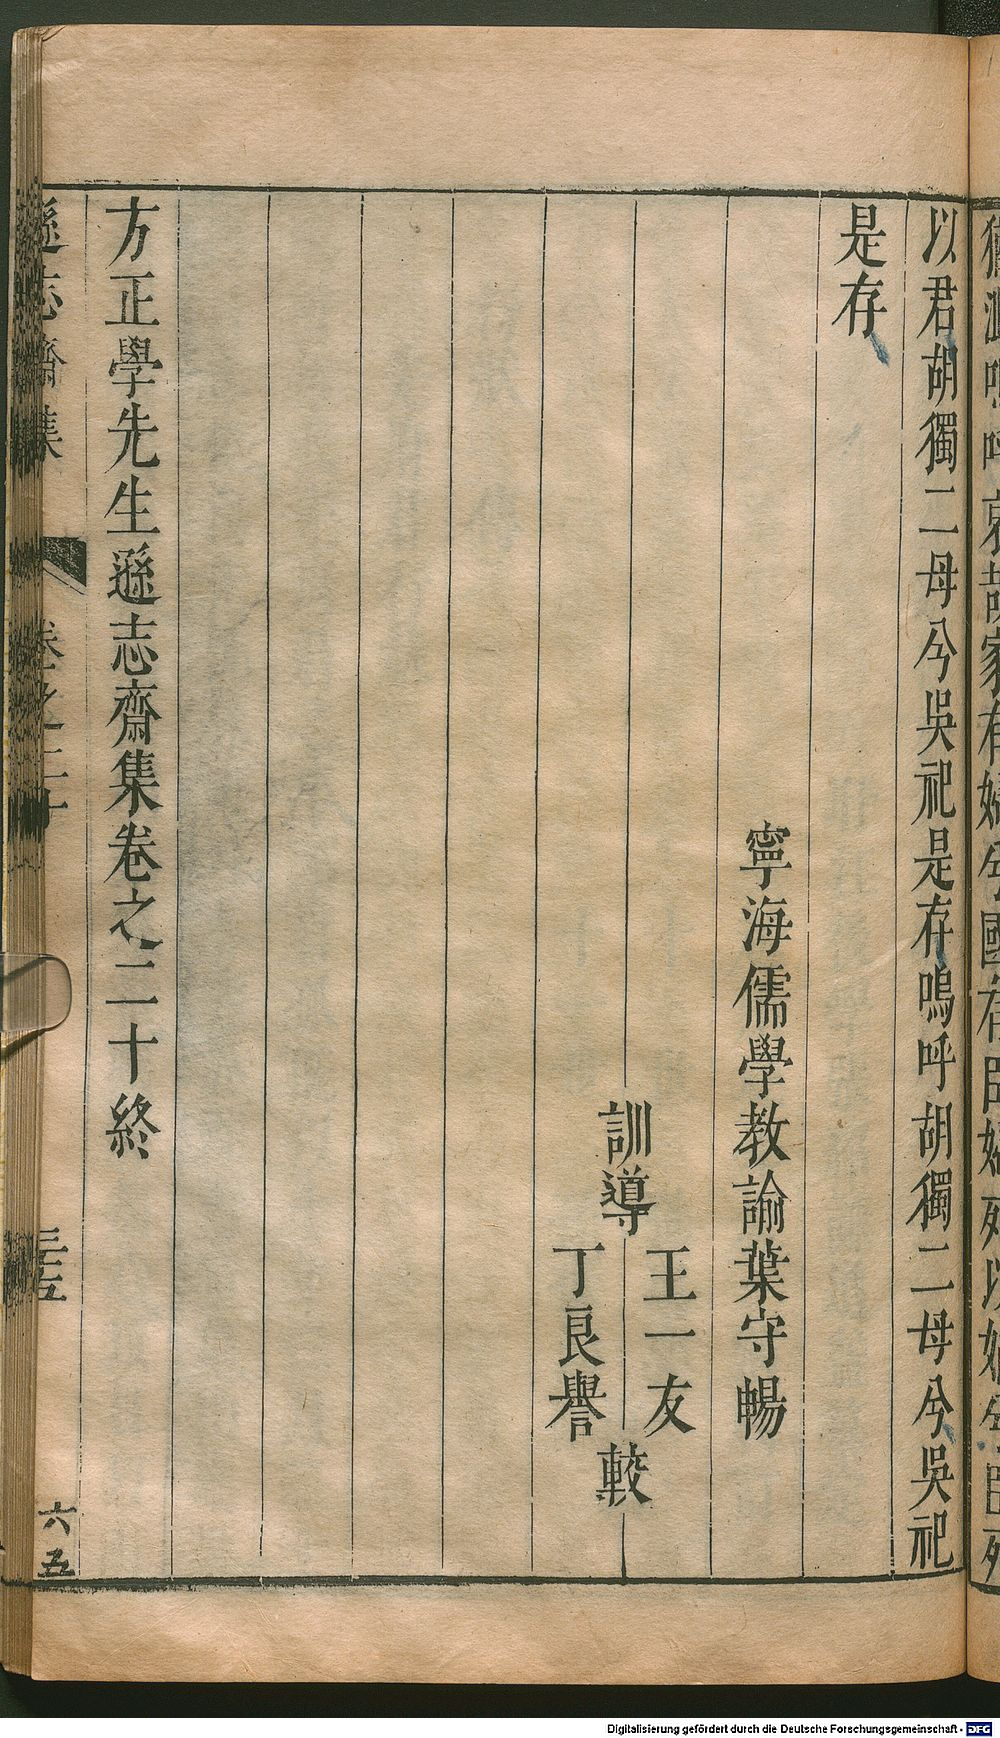 以君胡獨二母兮吳祀是存嗚呼胡獨二母兮吳祀
是存
寧海儒學教諭葉守暢
訓導
王一友
丁良譽
較
方正學先生遜志齋集卷之二十終
遜志齋集
卷之二十
六五
Digitalisierung gefördert durch die Deutsche Forschungsgemeinschaft - DFG